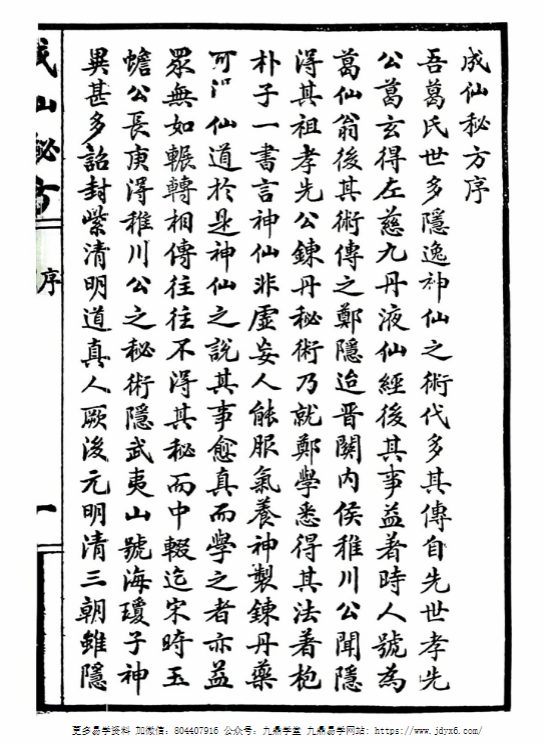 成仙秘方序
吾葛氏世多隱逸神仙之術代多其傳自先世孝先
公葛玄得左慈九丹液仙經後其事益著時人號為
葛仙翁後其術傳之鄭隱迨晉關內侯稚川公聞隱
得其祖孝先公鍊丹秘術乃就鄭學悉得其法著抱
朴子一書言神仙非虛妄人能服氣養神製鍊丹藥
可 仙道於是神仙之說其事愈真而學之者亦益
眾無如輾轉相傳往往不得其秘而中輟迄宋時玉
蟾公長庚得稚川公之秘術隱武夷山號海瓊子神
異甚多詔封紫清明道真人厥後元明清三朝雖隱
成仙秘方
序
一
更多易学资料 加微信：804407916 公众号：九鼎学堂 九鼎易学网站：https://www.jdyx6.com/